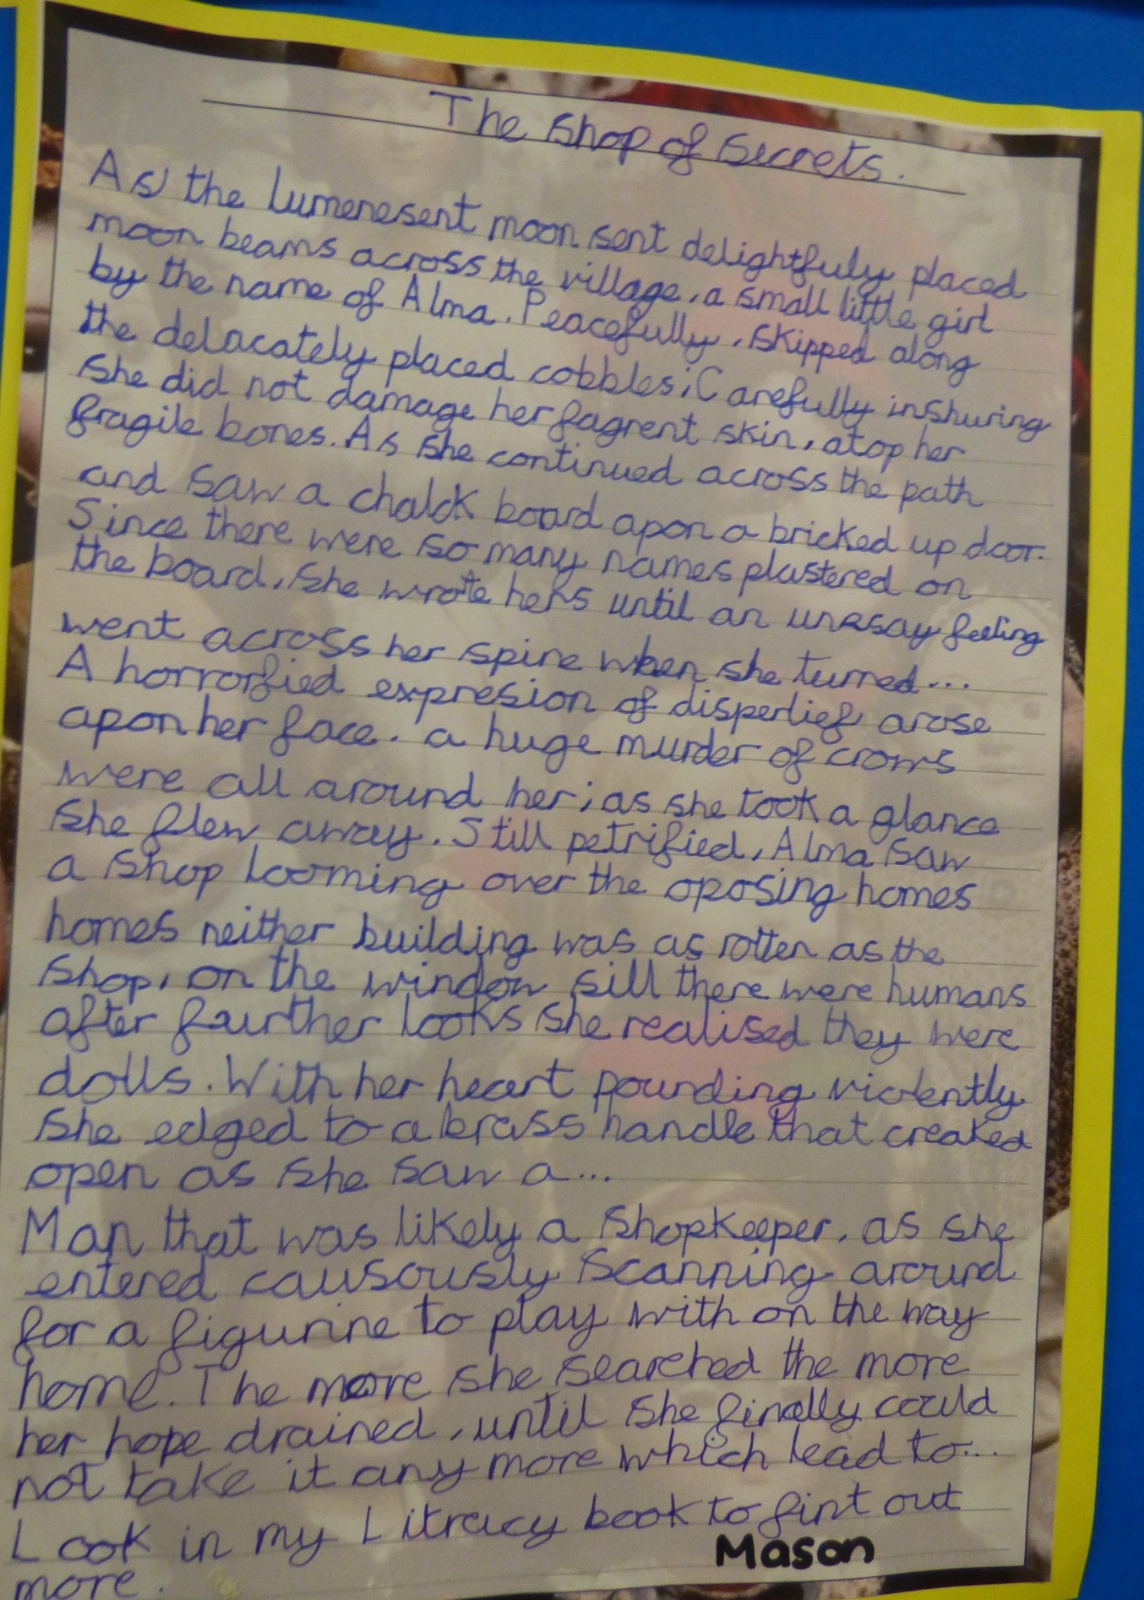 The Shop of Secrets.
As the Lumenesent moon sent delightfuly placed
moon beams across the village, a small little girl
by the name of Alma. Peacefully, skipped along
the delacately placed cobbles; Carefully inshuring
she did not damage her fagrent skin, atop her
fragile bones. As she continued across the path
and saw a chalck board apon a bricked up door.
Since there were so many names plastered on
the board, she wrote hers until an uneasy feeling
went across her spine when she turned...
A horrorfied expresion of disperlief arose
apon her face. a huge murder of crows
were all around her; as she took a glance
she flew away. Still petrified, Alma saw
a shop looming over the oposing homes
homes neither building was as rotten as the
shop, on the window sill there were humans
after faurther looks she realised they were
dolls. With her heart pounding violently
she edged to a brass handle that creaked
open as she saw a...
Man that was likely a shopkeeper, as she
entered causously scanning around
for a figurine to play with on the way
home. The more she searched the more
her hope drained, until she finally could
not take it any more which lead to...
Look in my Litracy book to fint out
more.
Mason